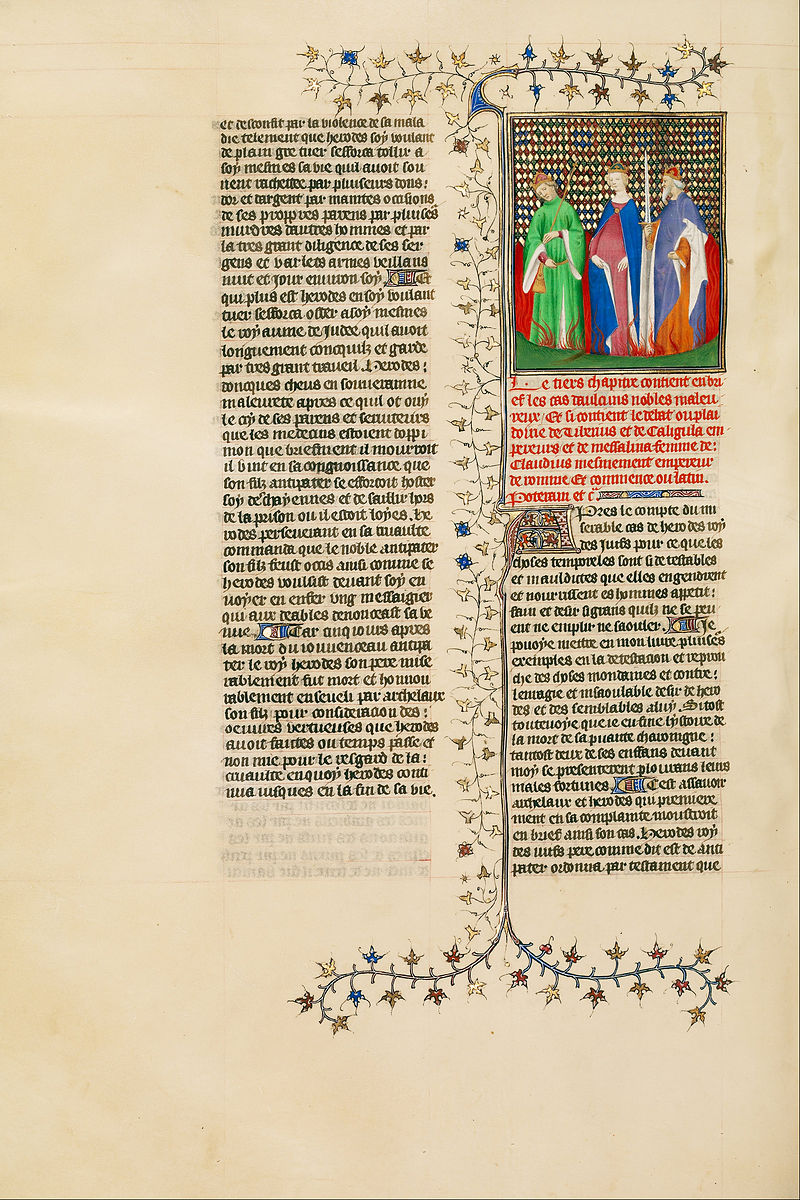 et desconfit par la violence de sa mala
die telement que herodes soy voulant
de plain gre tuer sefforca tollir a
soy mesmes sa vie quil avoit sou
uent rachettee par pluiseurs dons:
dor et dargent par maintes occisions
de ses propres parens par pluiseurs
murdres dautres hommes et par
la tres grant diligence de ses ser
gens et varlets armes veillans
nuit et jour enuiron soy Et
qui plus est herodes en soy voulant
tuer sefforca oster a soy mesmes
le royaume de Judee quil avoit
longuement conquis et garde
par tres grant travail. Herodes:
doncques cheus en souveraine
maleurete apres ce quil ot ouy
le cry de ses parens et serviteurs
que les medecins estoient
mon que briefment il mourroit
il vint en sa congnoissance que
son filz antipater se efforcoit hoster
soy de chayennes et de saillir hors
de la prison ou il estoit loyes. he
rodes perseverant en sa cruaulte
commanda que le noble antipater
son filz feust occis ainsi comme se
herodes voulsist devant soy en
uoyer en enfer ung messaigier
qui aux deables denoncast sa ve
nue. Car cinq iours apres
la mort du iouuenceau antipa
ter le roy herodes son pere mise
rablement fut mort et honnou
rablement enseveli par archelaux
son filz pour consideracion des:
oeuures vertueuses que herodes
auoit faittes ou temps passe et
non mie pour le resgard de la:
cruaulte en quoy herodes conti
nua iusques en la fin de sa vie.
Le tiers chapitre contient en bri
ef les cas daulcuns nobles maleu
reux Et si contient le debat ou plai
doire de Tiberius et de Caligula em
pereurs et de messalina femme de:
Claudius mesmement empereur
de romme Et commence ou latin.
Poteram et cͣ
Apres le compte du mi
serable cas de herodes roy
des juifs pour ce que les
choses temporeles sont si detestables
et mauldites que elles engendrent
et nourrissent es hommes appetit:
faim et desir si grans quilz ne se peu
ent ne emplir ne saouler. Je
pouoye mettre en mon livre pluiseurs
exemples en la detestacion et reprou
che des choses mondaines et contre:
lenragie et insaoulable desir de hero
des et des semblables a luy. Si tost
toutevoye que ie eu fine lystoire de
la mort de sa puante charongne:
tantost deux de ses enffans deuant
moy se presenterent plourans leurs
males fortunes. Cest assavoir
archelaux et herodes qui premiere
ment en sa complainte moustroit
en brief ainsi son cas. Herodes roy
des iuifs pere comme dit est de anti
pater ordonna par testament que